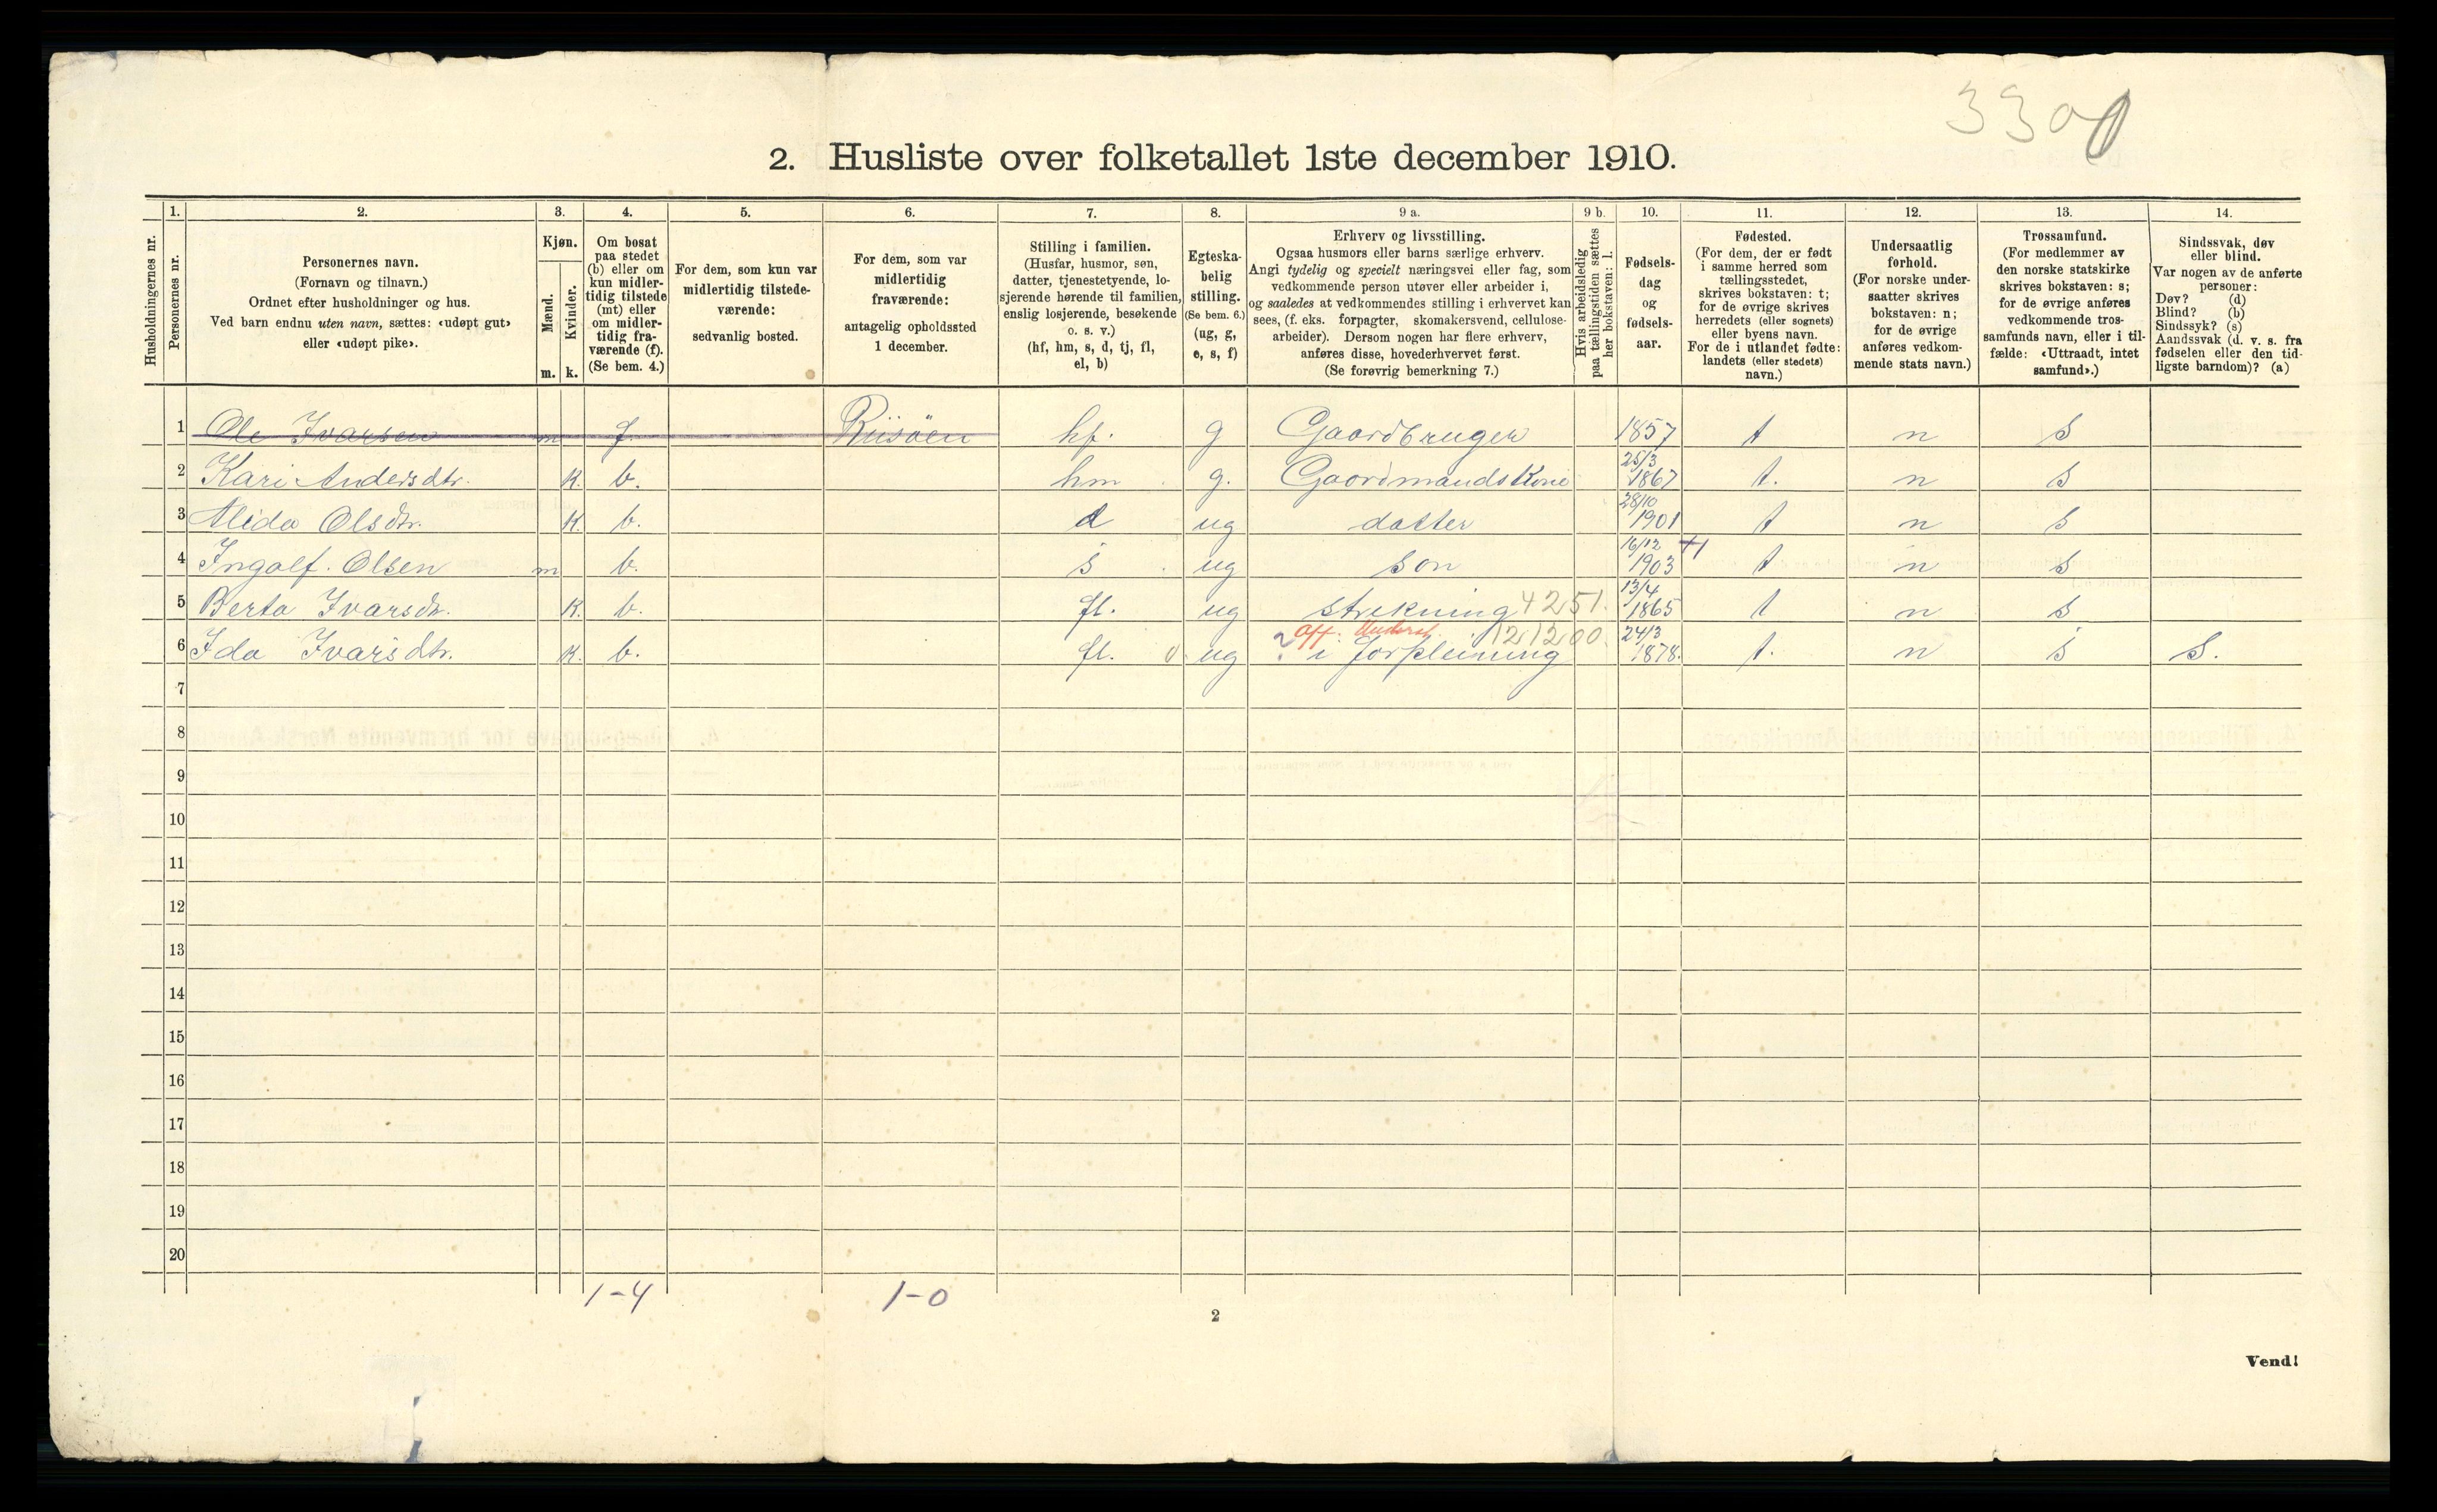 330
2. Husliste over folketallet 1ste december 1910.
Husholdningernes nr.
1.
Personernes nr.
2.
Personernes navn.
(Fornavn og tilnavn.)
Ordnet efter husholdninger og hus.
Ved barn endnu uten navn, sættes: «udøpt gut»
eller «udøpt pike».
3.
Kjøn.
Mænd.
Kvinder.
m. k.
4.
Om bosat
paa stedet
(b) eller om
kun midler-
tidig tilstede
(mt) eller
om midler-
tidig fra-
værende (f).
(Se bem. 4.)
5.
For dem, som kun var
midlertidig tilstede-
værende:
sedvanlig bosted.
6.
For dem, som var
midlertidig
fraværende:
antagelig opholdssted
1 december.
7.
Stilling i familien.
(Husfar, husmor, søn,
datter, tjenestetyende, lo-
sjerende hørende til familien,
enslig losjerende, besøkende
o. s. v.)
(hf, hm, s, d, tj, fl,
el, b)
8.
Egteska-
belig
stilling.
(Se bem. 6.)
(ug, g,
e, s, f)
9 a.
Erhverv og livsstilling.
Ogsaa husmors eller barns særlige erhverv.
Angi tydelig og specielt næringsvei eller fag, som
vedkommende person utøver eller arbeider i,
og saaledes at vedkommendes stilling i erhvervet kan
sees, (f. eks. forpagter, skomakersvend, cellulose-
arbeider). Dersom nogen har flere erhverv,
anføres disse, hovederhvervet først.
(Se forøvrig bemerkning 7.)
9 b.
Hvis arbeidsledig
paa tællingstiden sættes
her bokstaven: l.
10.
Fødsels-
dag
og
fødsels-
aar.
11.
Fødested.
(For dem, der er født
i samme herred som
tællingsstedet,
skrives bokstaven: t;
for de øvrige skrives
herredets (eller sognets)
eller byens navn.
For de i utlandet fødte:
landets (eller stedets)
navn.)
12.
Undersaatlig
forhold.
(For norske under-
saatter skrives
bokstaven: n;
for de øvrige
anføres vedkom-
mende stats navn.)
13.
Trossamfund.
(For medlemmer av
den norske statskirke
skrives bokstaven: s;
for de øvrige anføres
vedkommende tros-
samfunds navn, eller i til-
fælde: «Uttraadt, intet
samfund».)
14.
Sindssvak, døv
eller blind.
Var nogen av de anførte
personer:
Døv? (d)
Blind? (b)
Sindssyk? (s)
Aandssvak (d. v. s. fra
fødselen eller den tid-
ligste barndom)? (a)
1 Ole Ivarsen m f. Riisöen hf. g Gaardbruger 1857 t n s
2 Kari Andersdtr. k. b. hm g. Gaardmandskone 25/3 1867 t. n s
3 Alida Olsdtr. k. b. d ug datter 28/10 1901 t n s
4 Ingolf. Olsen m b. s ug son 16/12 1903 t n s
5 Berta Ivarsdtr. k. b. fl. ug strikning 4251. 13/4 1865 t n s
Off. Underst. 121200.
6 Ida Ivarsdtr. k. b. fl. ug ? i forpleining 24/3 1878. t. n s S.
7
8
9
10
11
12
13
14
15
16
17
18
19
20
1-4 1-0
2
Vend!